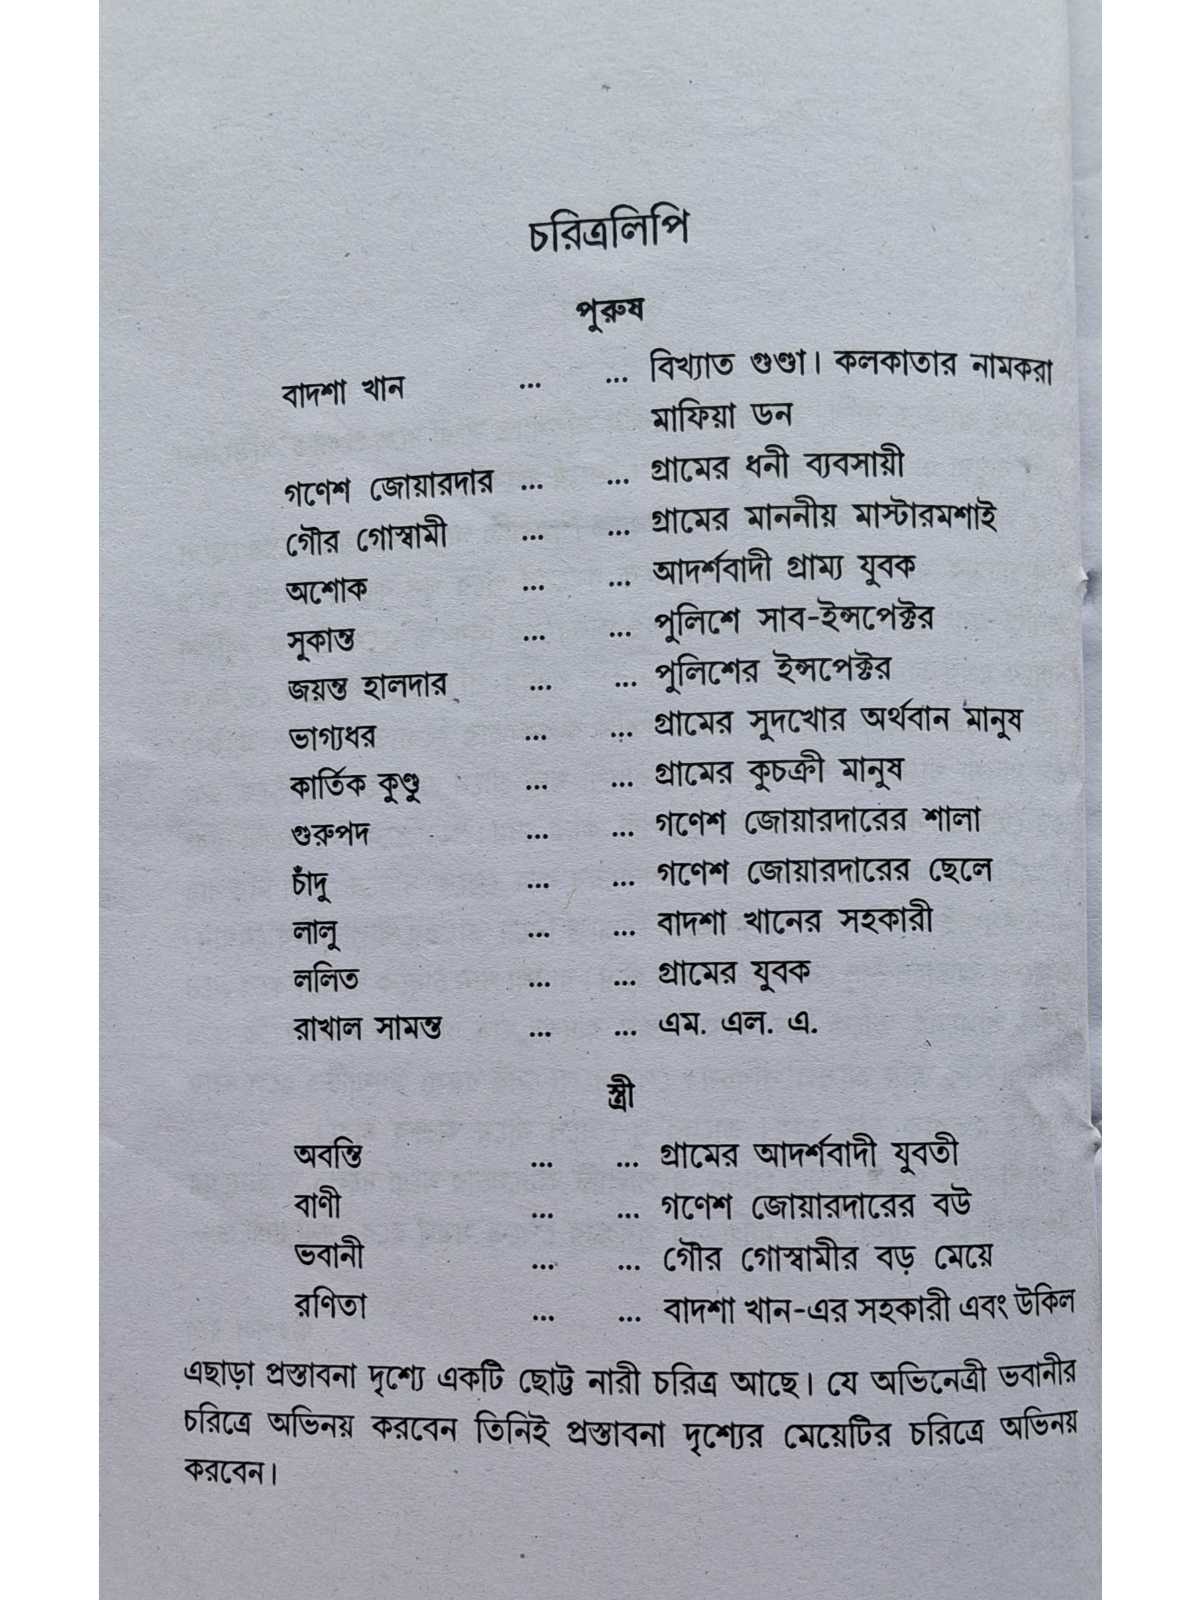 চরিত্রলিপি
পুরুষ
বাদশা খান ... ... বিখ্যাত গুণ্ডা। কলকাতার নামকরা
মাফিয়া ডন
গণেশ জোয়ারদার ... ... গ্রামের ধনী ব্যবসায়ী
গৌর গোস্বামী ... ... গ্রামের মাননীয় মাস্টারমশাই
অশোক ... ... আদর্শবাদী গ্রাম্য যুবক
সুকান্ত ... ... পুলিশে সাব-ইন্সপেক্টর
জয়ন্ত হালদার ... ... পুলিশের ইন্সপেক্টর
ভাগ্যধর ... ... গ্রামের সুদখোর অর্থবান মানুষ
কার্তিক কুণ্ডু ... ... গ্রামের কুচক্রী মানুষ
গুরুপদ ... ... গণেশ জোয়ারদারের শালা
চাঁদু ... ... গণেশ জোয়ারদারের ছেলে
লালু ... ... বাদশা খানের সহকারী
ললিত ... ... গ্রামের যুবক
রাখাল সামন্ত ... ... এম. এল. এ.
স্ত্রী
অবন্তি ... ... গ্রামের আদর্শবাদী যুবতী
বাণী ... ... গণেশ জোয়ারদারের বউ
ভবানী ... ... গৌর গোস্বামীর বড় মেয়ে
রণিতা ... ... বাদশা খান-এর সহকারী এবং উকিল
এছাড়া প্রস্তাবনা দৃশ্যে একটি ছোট্ট নারী চরিত্র আছে। যে অভিনেত্রী ভবানীর
চরিত্রে অভিনয় করবেন তিনিই প্রস্তাবনা দৃশ্যের মেয়েটির চরিত্রে অভিনয়
করবেন।